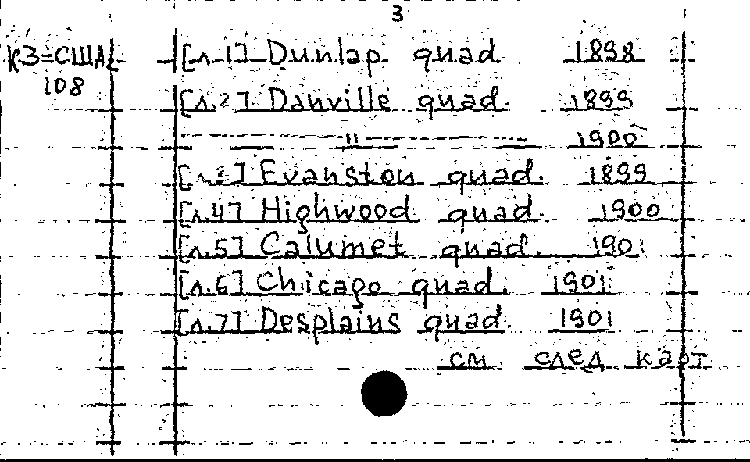 3
К3=США [л.1] Dunlap quad 1898
108
[л.2] Danville quad. 1899
—〃— 1900
[л.3] Evanston quad. 1899
[л.4] Highwood quad. 1900
[л.5] Calumet quad. 1901
[л.6] Chicago quad. 1901
[л.7] Desplains quad. 1901
см. след карт